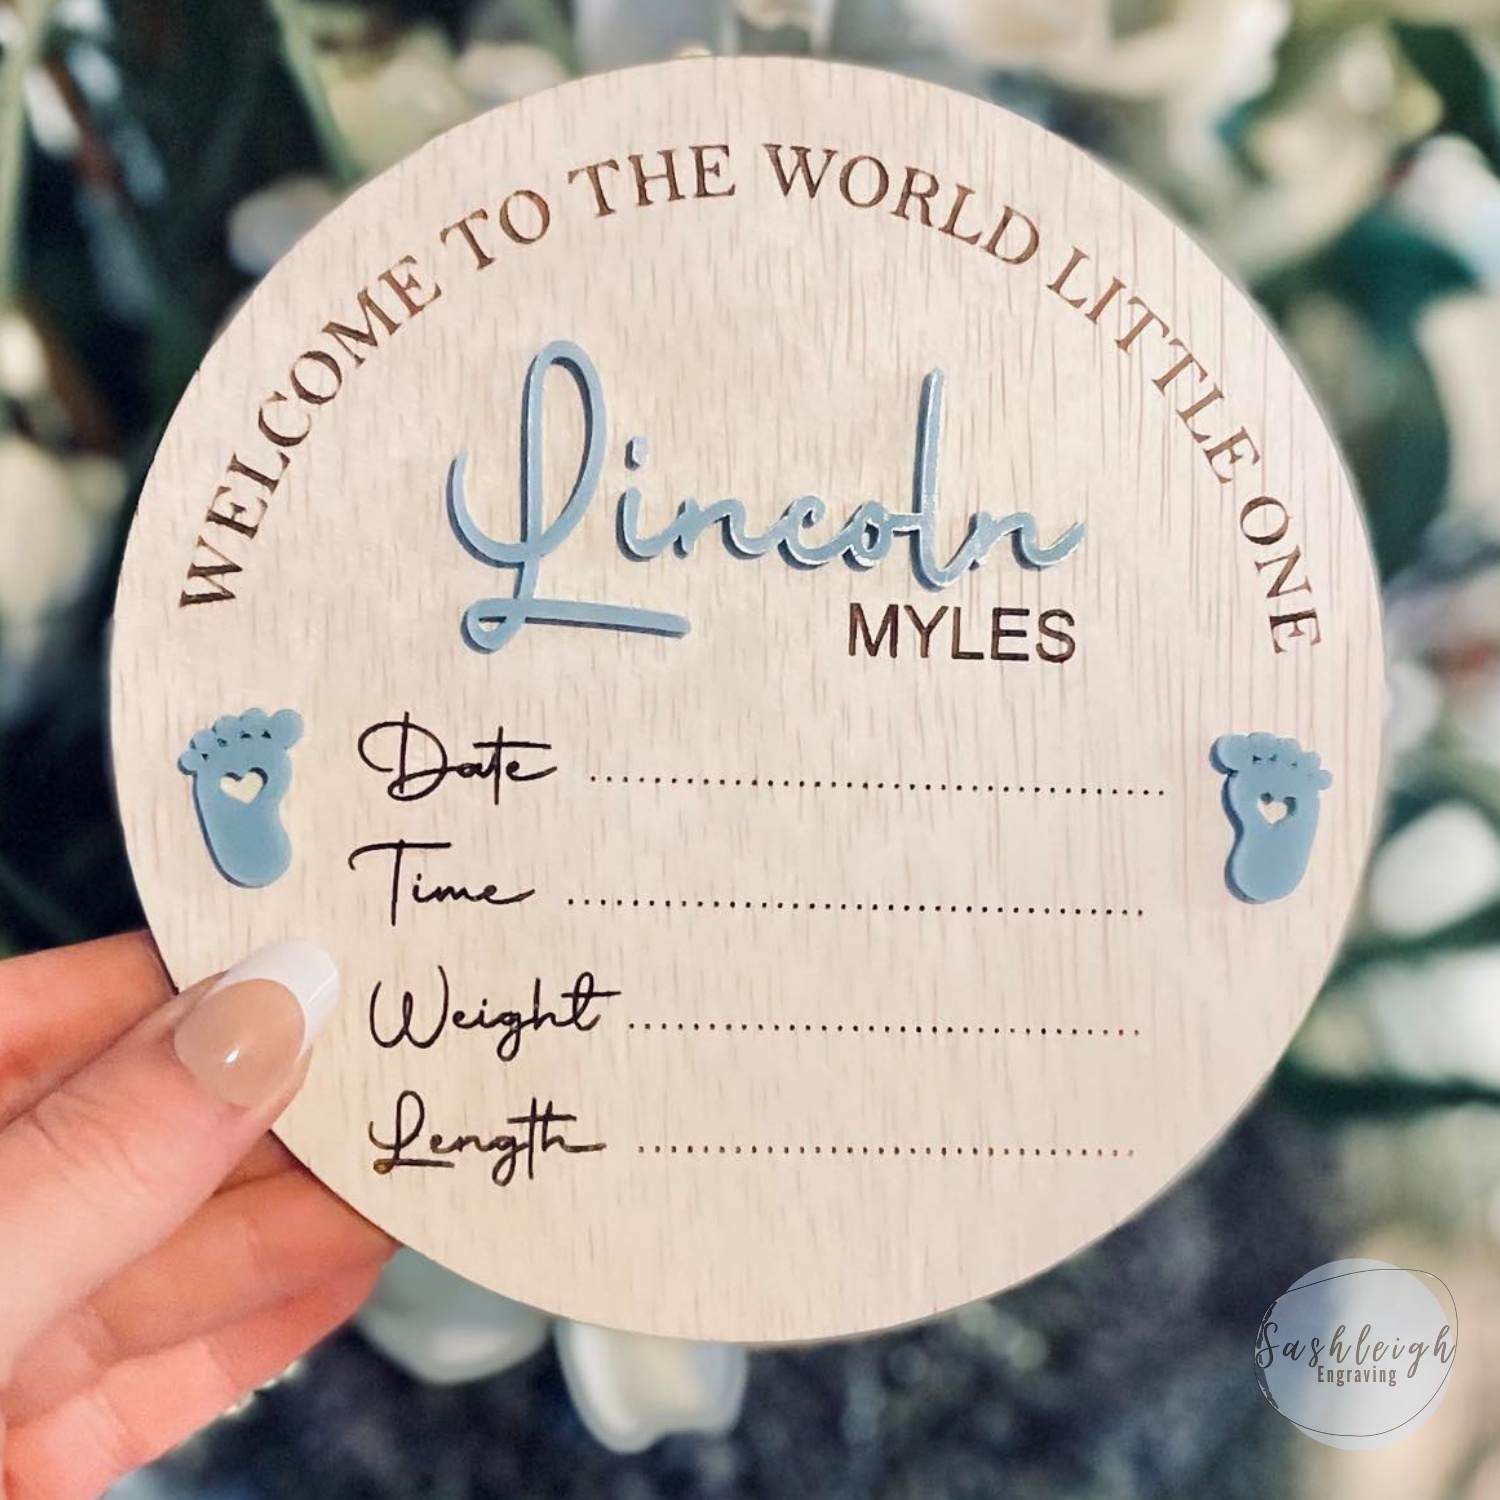 WELCOME TO THE WORLD LITTLE ONE
Lincoln
MYLES
Date ..............................................
Time ..............................................
Weight .........................................
Length ........................................
Sashleigh
Engraving